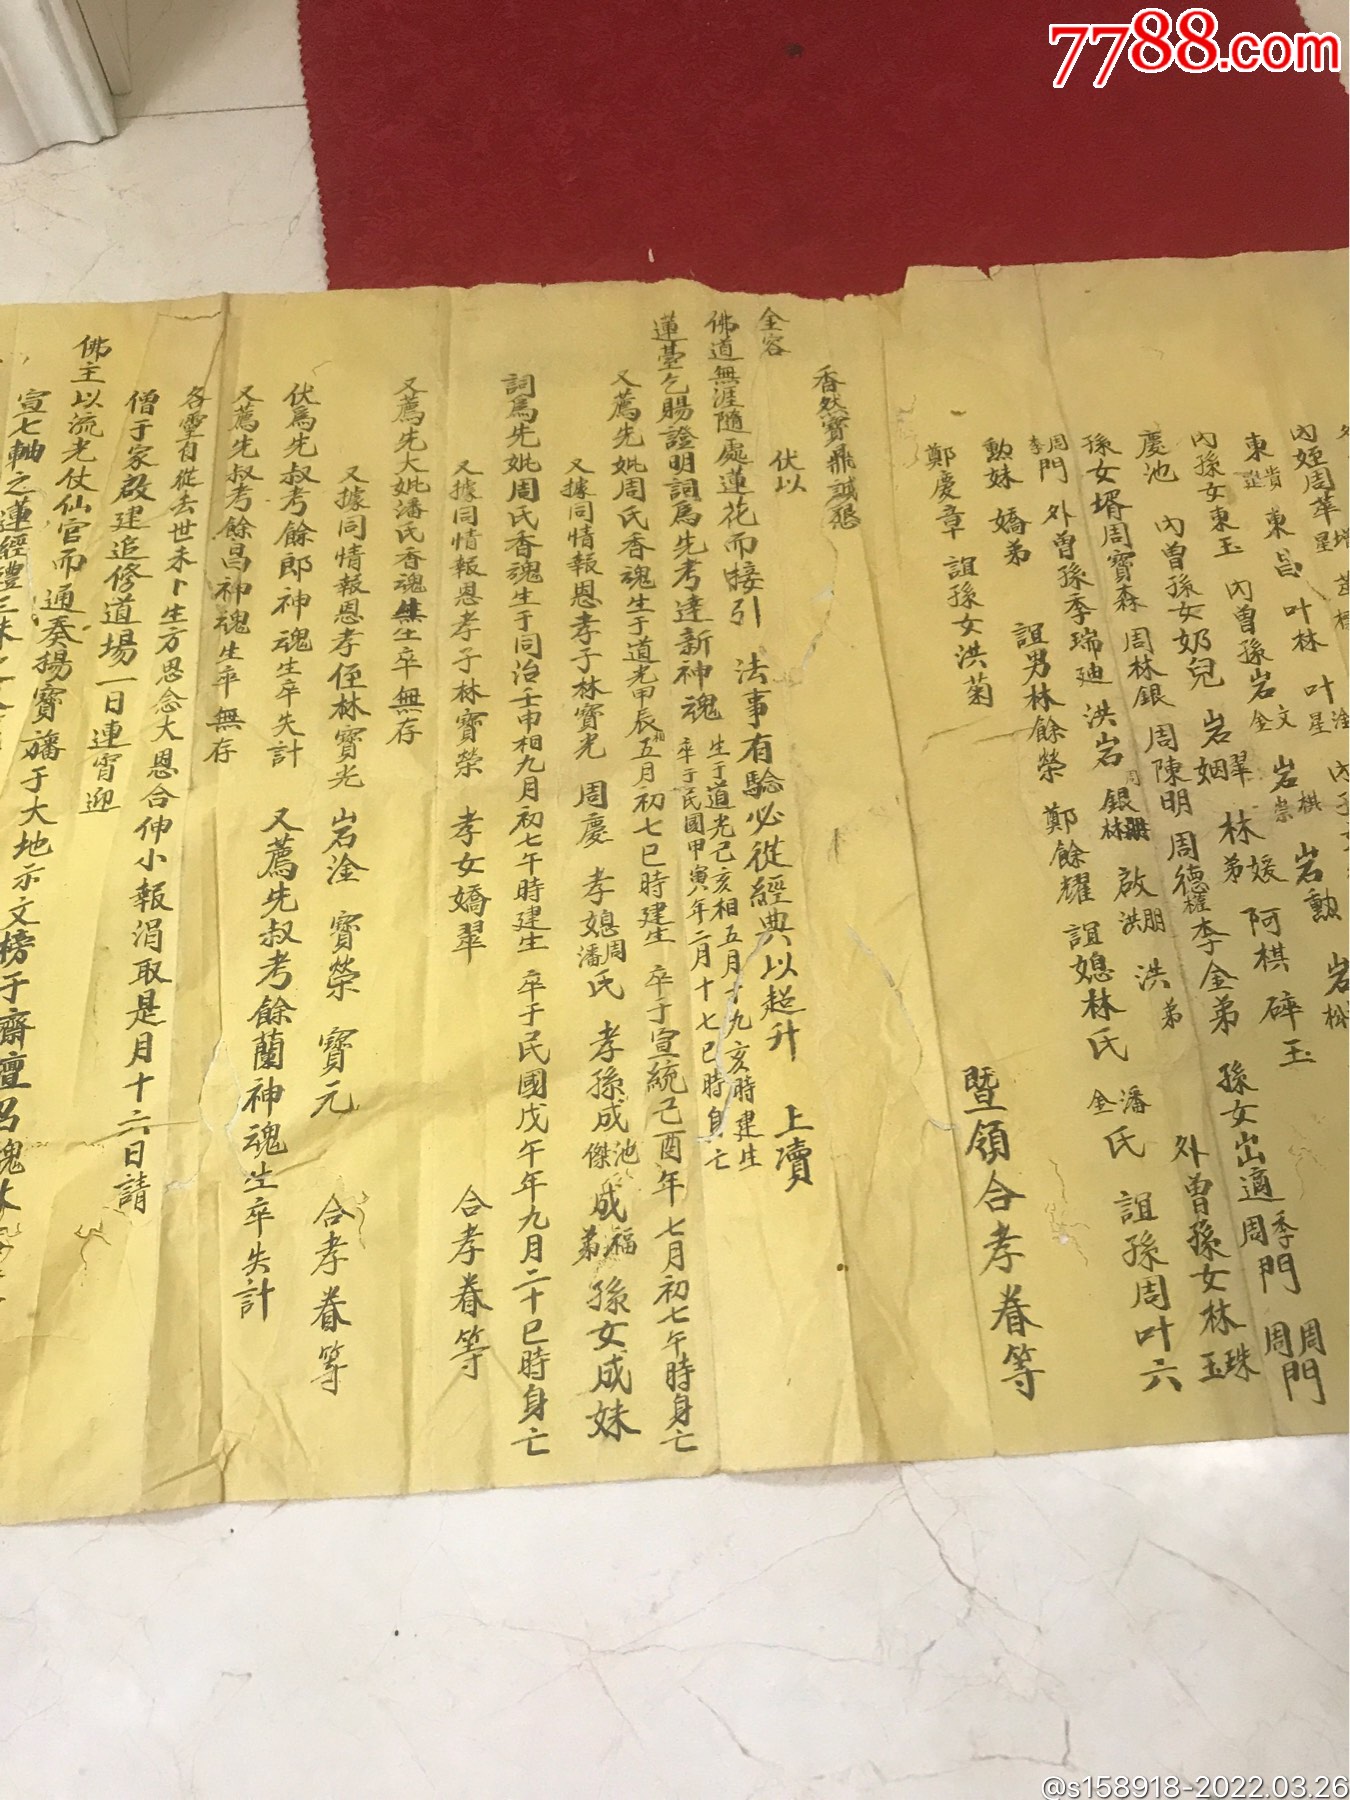 7788.com
內姪周華星
東 東昌 叶林 叶星
內孫女東玉 內曾孫岩金文 岩崇棋 岩勳 岩松
慶池 內曾孫女奶兒 岩姻翠 林弟媛 阿棋 碎玉
孫女壻周寶森 周林銀 周陳明 周德權 李金弟 孫女出適周季門 周周門
李周門 外曾孫季瑞廸 洪岩 銀林 啟洪朋 洪弟 外曾孫女林玉珠
勲妹 嬌弟 誼男林餘榮 鄭餘耀 誼媳林氏 金潘氏 誼孫周叶六
鄭慶章 誼孫女洪菊 暨領合孝眷等
香然寶鼎誠懇
金容 伏以 法事有驗必從經典以超升 上瀆
佛道無涯隨處蓮花而接引
蓮臺乞賜證明詞爲先考達新神魂 生于道光己亥相五月十九亥時建生 卒于民國甲寅年二月十七巳時身亡
又薦先妣周氏香魂生于道光甲辰相五月初七巳時建生 卒于宣統己酉年七月初七午時身亡
又據同情報恩孝子林寶光 周慶 孝媳潘周氏 孝孫成傑池 成弟福 孫女成妹
詞爲先妣周氏香魂生于同治壬申相九月初七午時建生 卒于民國戊午年九月二十巳時身亡
又據同情報恩孝子林寶榮 孝女嬌翠 合孝眷等
又薦先大妣潘氏香魂生卒無存
又據同情報恩孝侄林寶光 岩淦 寶榮 寶元 合孝眷等
伏爲先叔考餘郎神魂生卒失計 又薦先叔考餘蘭神魂生卒失計
又薦先叔考餘昌神魂生卒無存
各靈自從去世未卜生方思念大恩合伸小報涓取是月十六日請
僧于家啟建追修道場一日連宵迎
佛主以流光仗仙官而通奏揚寶旛于大地示文榜于齋壇召魂
宣七軸之蓮經禮三
@s158918-2022.03.26